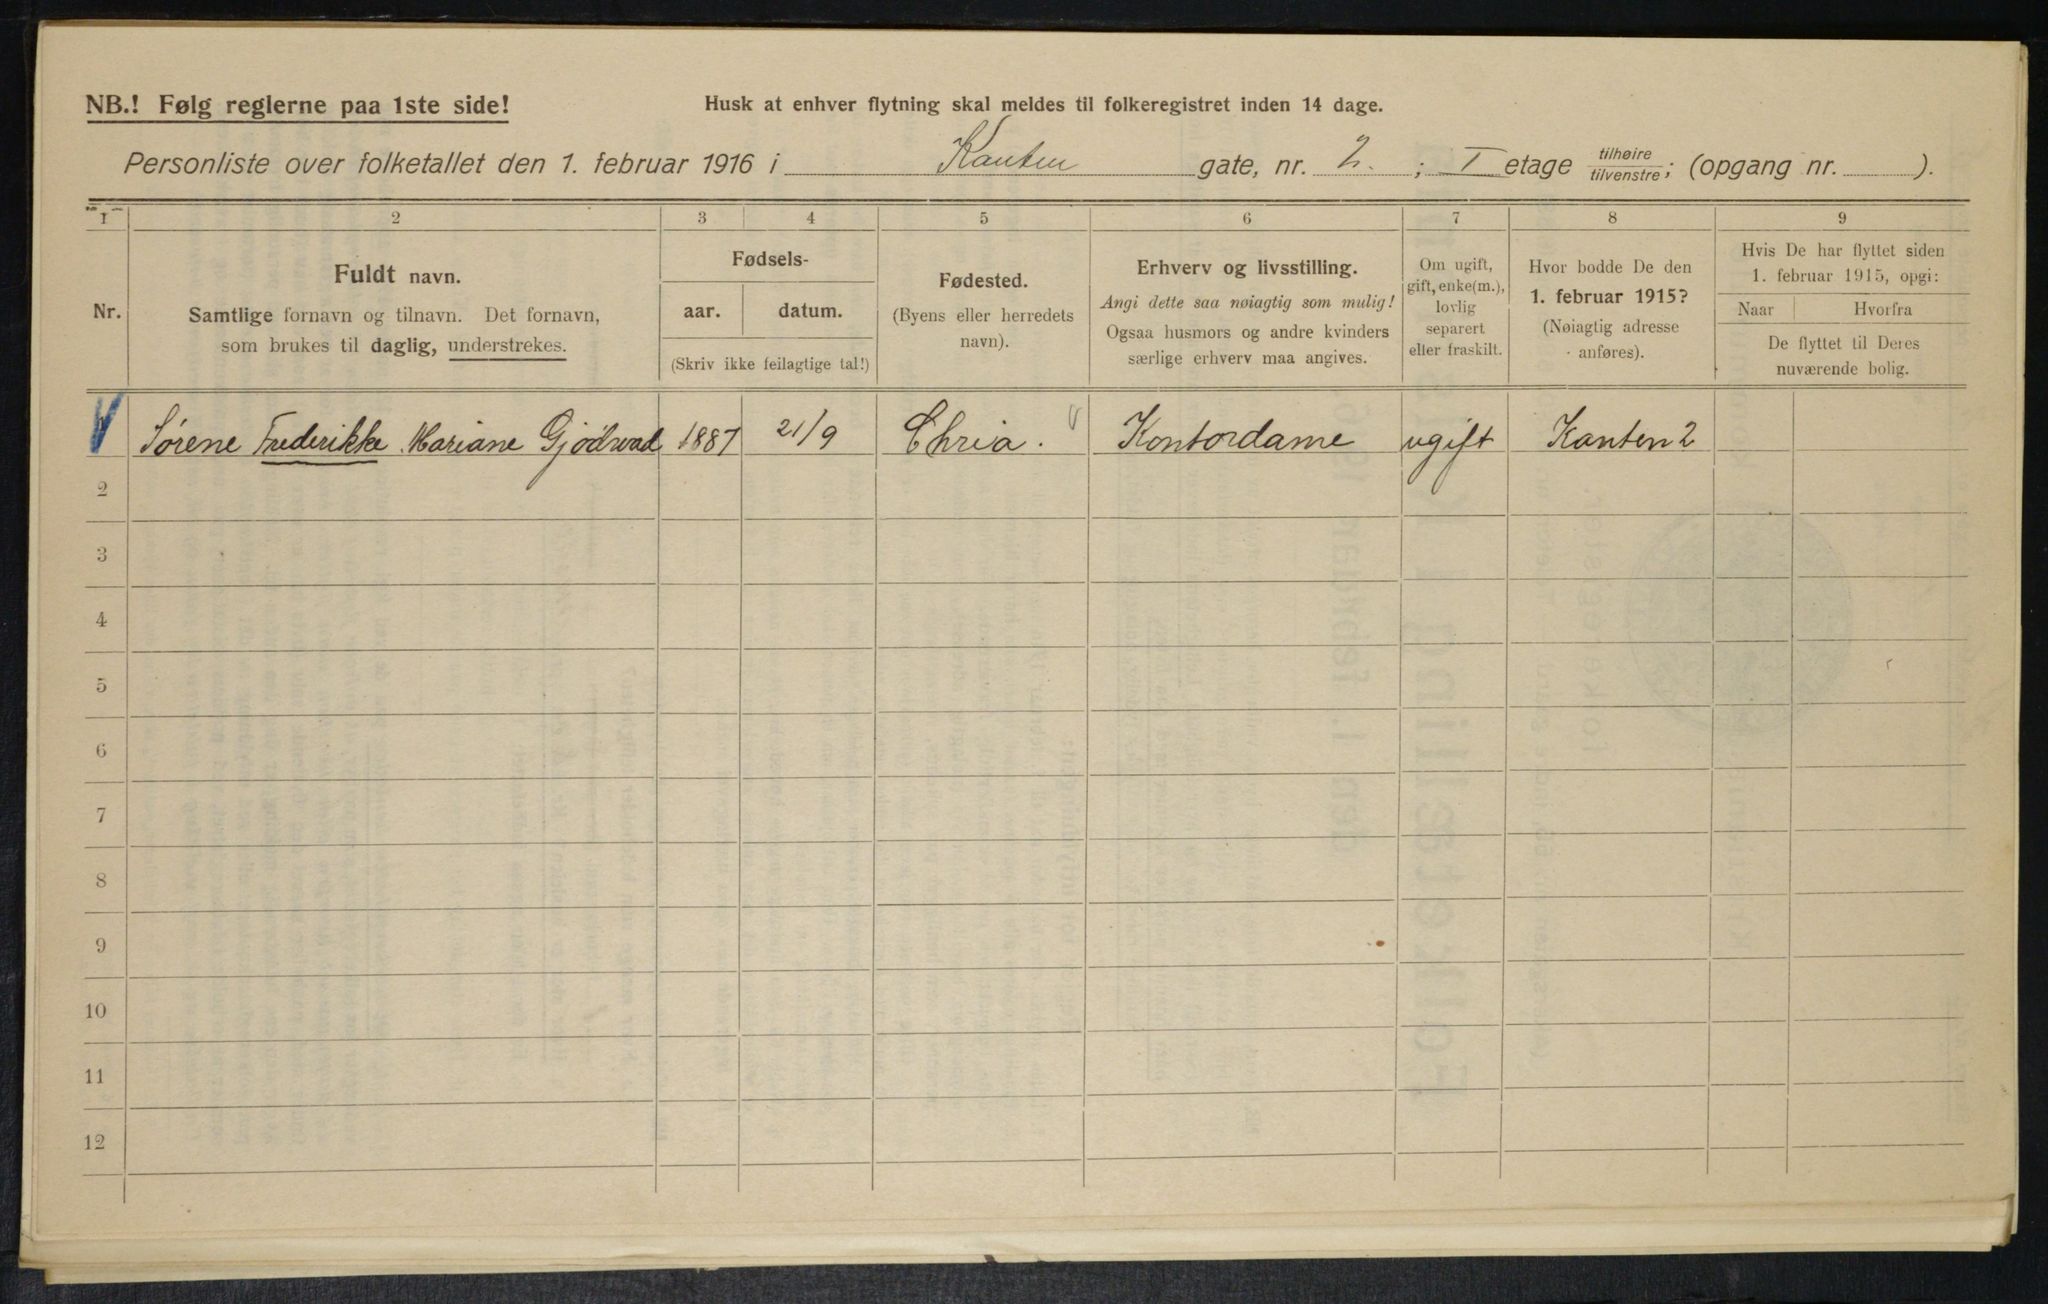 NB.! Følg reglerne paa 1ste side!
Husk at enhver flytning skal meldes til folkeregistret inden 14 dage.
Personliste over folketallet den 1. februar 1916 i Kanten gate, nr. 2. ; I etage tilhøire tilvenstre; (opgang nr. ).
1 2 3 4 5 6 7 8 9
Nr.
Fuldt navn.
Samtlige fornavn og tilnavn. Det fornavn,
som brukes til daglig, understrekes.
Fødsels-
aar. datum.
(Skriv ikke feilagtige tal!)
Fødested.
(Byens eller herredets
navn).
Erhverv og livsstilling.
Angi dette saa nøiagtig som mulig!
Ogsaa husmors og andre kvinders
særlige erhverv maa angives.
Om ugift,
gift, enke(m.),
lovlig
separert
eller fraskilt.
Hvor bodde De den
1. februar 1915?
(Nøiagtig adresse
anføres).
Hvis De har flyttet siden
1. februar 1915, opgi:
Naar Hvorfra
De flyttet til Deres
nuværende bolig.
Sørene Frederikke Mariane Gjödvad 1887 21/9 Chria. Kontordame ugift Kanten 2
2
3
4
5
6
7
8
9
10
11
12